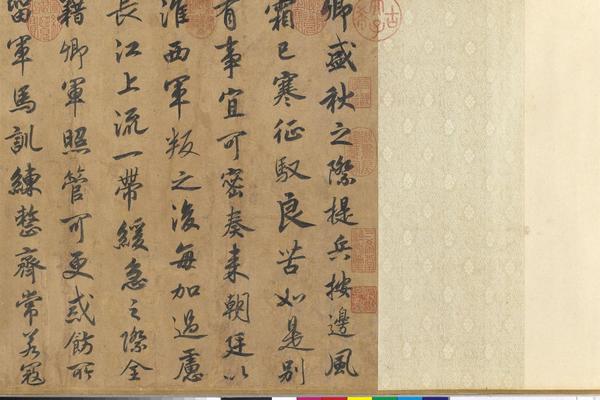 卿盛秋之際提兵按邊風
霜已寒征馭良苦如是別
有事宜可密奏來朝廷以
淮西軍叛之後每加過慮
長江上流一帶緩急之際全
藉卿軍照管可更戒飭所
留軍馬訓練整齊常若寇